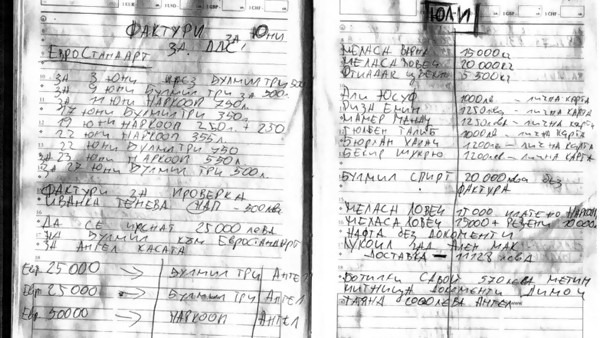 ФАКТУРИ ЗА ЮНИ
ЗА ДДС
ЕВРОСТАНДАРТ
ЗА 3 ЮНИ ПРЕЗ БУЛМИЛ ТРИ 500
ЗА 9 ЮНИ БУЛМИЛ ТРИ ЗА 500л.
ЗА 11 ЮНИ НАРКООП 750л.
17 ЮНИ БУЛМИЛ ТРИ 350л.
19 ЮНИ НАРКООП 250л. + 250.
22 ЮНИ НАРКООП 350л.
22 ЮНИ БУЛМИЛ ТРИ 750
ЗА 23 ЮНИ НАРКООП 550л.
ЗА 27 ЮНИ БУЛМИЛ ТРИ 500л.
ФАКТУРИ ЗА ПРОВЕРКА
ИВАНКА ТЕНЕВА НАП - 500лева
ДА СЕ ПУСНАТ 25000 ЛЕВА
НА БУЛМИЛ КЪМ ЕВРОСТАНДАРТ
ЗА АНГЕЛ КАСАТА
ЕВР 25000 → БУЛМИЛ ТРИ АНГЕЛ
ЕВР 25000 → БУЛМИЛ ТРИ АНГЕЛ
ЕВР 50000 → НАРКООП АНГЕЛ
ЮЛИ
МЕЛАСА ВАРНА 15000кг
МЕЛАСА ЛОВЕЧ 20000кг
5500кг
АЛИ ЮСУФ 1000лв - ЛИЧНА КАРТА
РИЗА ЕМИН 1250лв - ЛИЧНА КАРТА
1250лв - ЛИЧНА КАРТА
ГЮЛБЕН ТАЛИБ 1000лв - ЛИЧНА КАРТА
1200лв - ЛИЧНА КАРТА
БЕКИР ШУКРЮ 1200лв - ЛИЧНА КАРТА
БУЛМИЛ СПИРТ 20.000 лева БЕЗ
ФАКТУРА
МЕЛАСА ЛОВЕЧ 15000 ПЛАТЕНО НАРКООП
МЕЛАСА ЛОВЕЧ 25000 + РЕЗЕНИ 10000
НАФТА БЕЗ ДОКУМЕНТИ
ЛУКОИЛ ЗАД АЛЕН МАК
ДОСТАВКА - 11128 лева
БОТИЛКИ САВОЙ 570 лева МЕТИН
МИТНИЦА ДОКУМЕНТИ ДИМО
ТАЯНА 6000 ЛЕВА АНГЕЛ